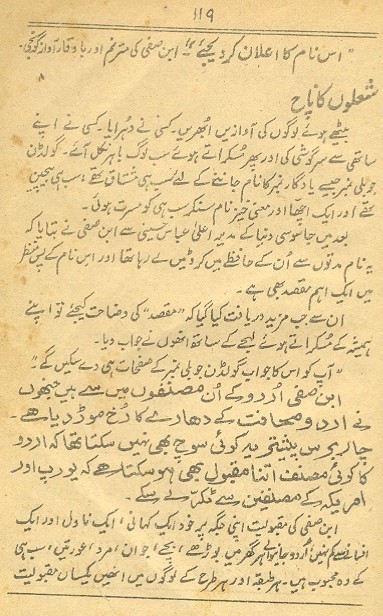 119
"اس نام کا اعلان کر دیجئے!" ابن صفی کی مترنم اور با وقار آواز گونجی۔
شعلوں کا ناچ
بیٹھے ہوئے لوگوں کی آوازیں ابھریں۔ کسی نے دہرایا۔ کسی نے اپنے
ساتھی سے سرگوشی کی اور پھر مسکراتے ہوئے سب لوگ باہر نکل آئے۔ گولڈن
جوبلی نمبر جیسے یادگار نمبر کا نام جاننے کے لئے سب ہی مشتاق تھے، سب ہی بیچین
تھے اور ایک اچھا اور معنی خیز نام سنکر سب ہی کو مسرت ہوئی۔
بعد میں جاسوسی دنیا کے مدیر اعلیٰ عباس حسینی سے ابن صفی نے بتایا کہ
یہ نام مدتوں سے اُن کے حافظہ میں کروٹیں لے رہا تھا اور اس نام کے پس منظر
میں ایک اہم مقصد بھی ہے۔
ان سے جب مزید دریافت کیا گیا کہ "مقصد" کی وضاحت کیجئے تو اپنے
ہمیشہ کے مسکراتے ہوئے لہجے کے ساتھ انھوں نے جواب دیا۔
"آپ کو اس کا جواب گولڈن جوبلی نمبر کے صفحات ہی دے سکیں گے"
ابن صفی اُردو کے اُن مصنفوں میں سے ہیں جنھوں
نے ادب و صحافت کے دھارے کا رُخ موڑ دیا ہے۔
چار برس پیشتر یہ کوئی سوچ بھی نہیں سکتا تھا کہ اردو
کا کوئی مصنف اتنا مقبول بھی ہو سکتا ہے کہ یورپ اور
امریکہ کے مصنفین سے ٹکر لے سکے۔
ابن صفی کی مقبولیت اپنی جگہ پر خود ایک کہانی، ایک ناول اور ایک
افسانے سے کم نہیں، اُردو جاننے والے ہر گھر میں بوڑھے، بچے، جوان، مرد، عورتیں، سب ہی
کے وہ محبوب ہیں۔ ہر طبقہ اور ہر طرح کے لوگوں میں انھیں یکساں مقبولیت